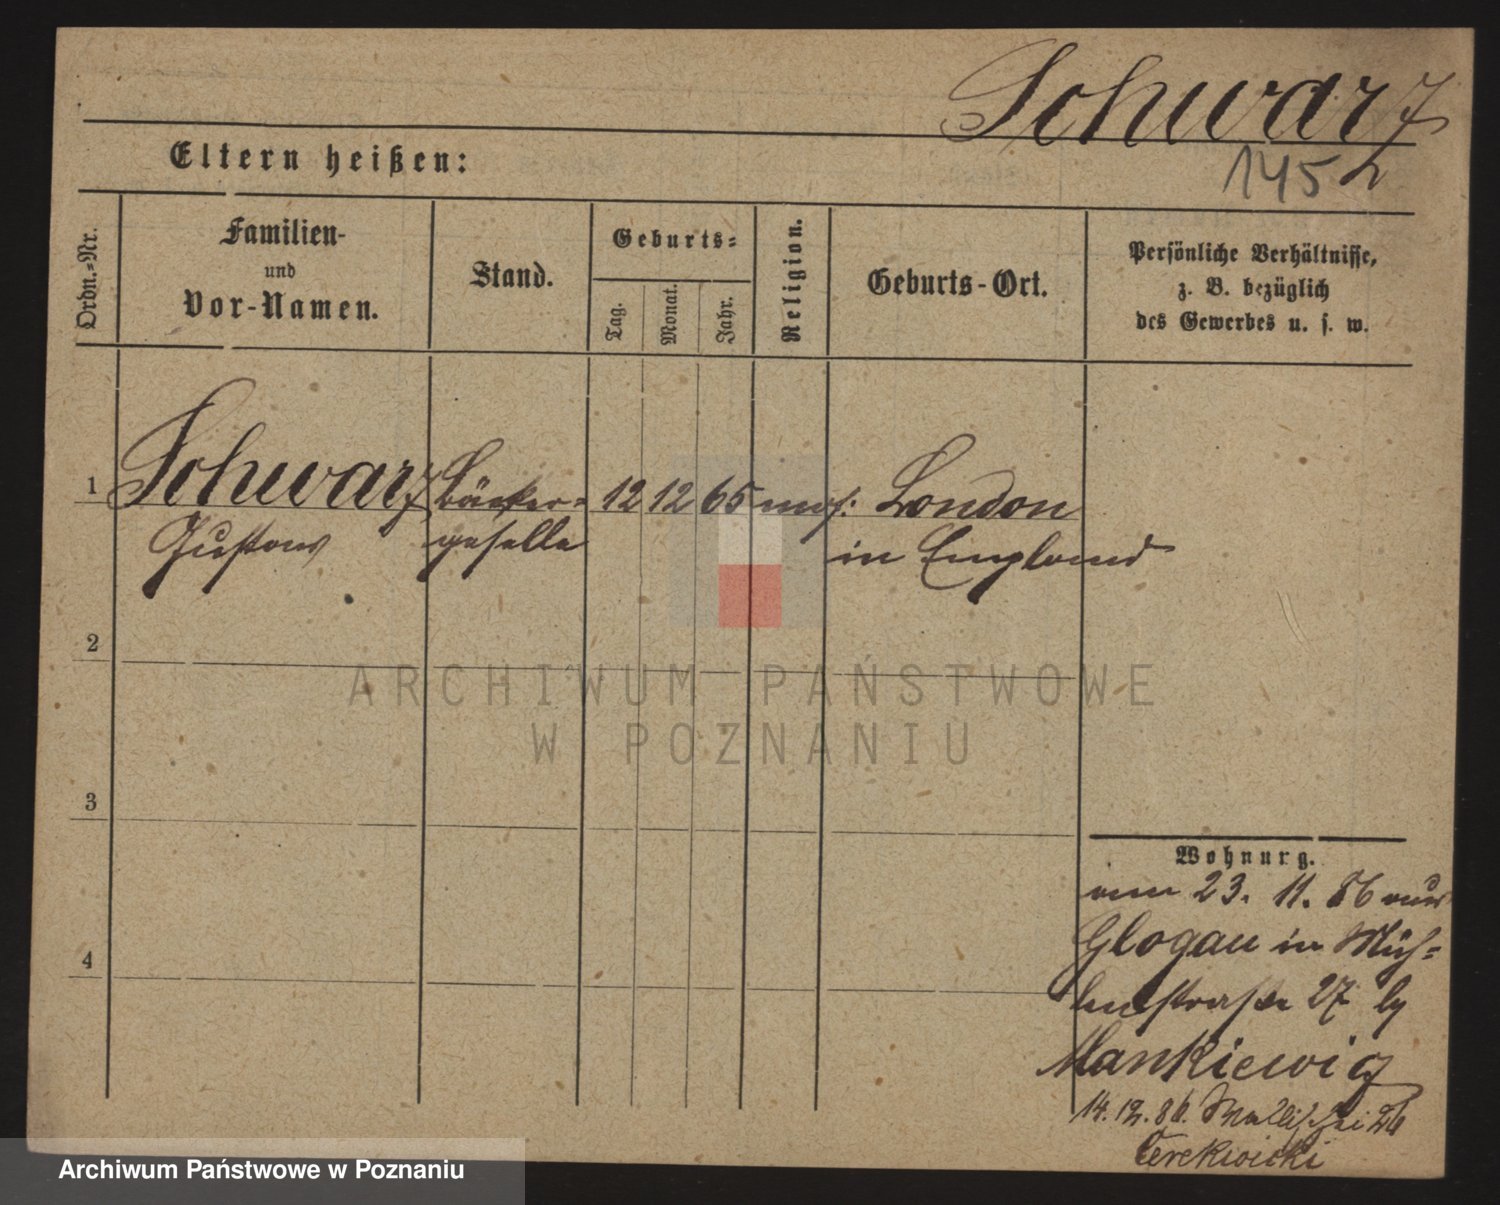 Schwarz
145
Eltern heißen:
Ordn.=Nr.
Familien-
und
Vor-Namen.
Stand.
Geburts=
Tag.
Monat.
Jahr.
Religion.
Geburts-Ort.
Persönliche Verhältnisse,
z. B. bezüglich
des Gewerbes u. s. w.
1 Schwarz Bäcker= 12 12 65 mos: London
Gustav geselle in England
2
ARCHIWUM PAŃSTWOWE
W POZNANIU
3
Wohnung.
23. 11. 86 aus
Glogau in Müh=
lenstraße 27
4
Mankiewicz
14. 12. 86. 26
Cerekwicki
Archiwum Państwowe w Poznaniu